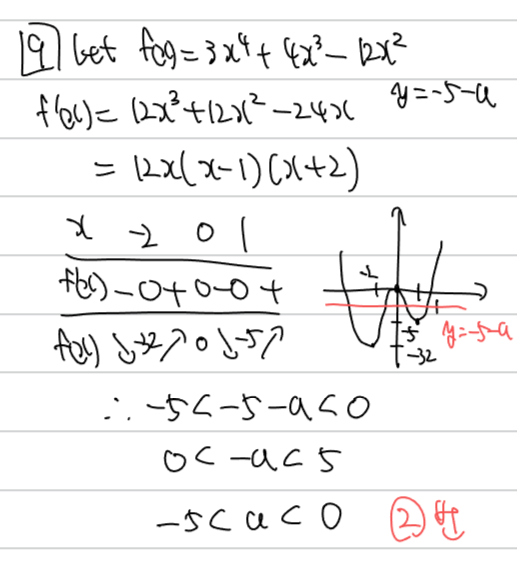 19 let f(x)=3x⁴+4x³-12x²
f'(x)=12x³+12x²-24x y=-5-a
=12x(x-1)(x+2)
x -2 0 1
f'(x) - 0 + 0 - 0 +
f(x) ↘ -32 ↗ 0 ↘ -5 ↗
-2 1
-5
-32
y=-5-a
∴ -5<-5-a<0
0<-a<5
-5<a<0 ②번